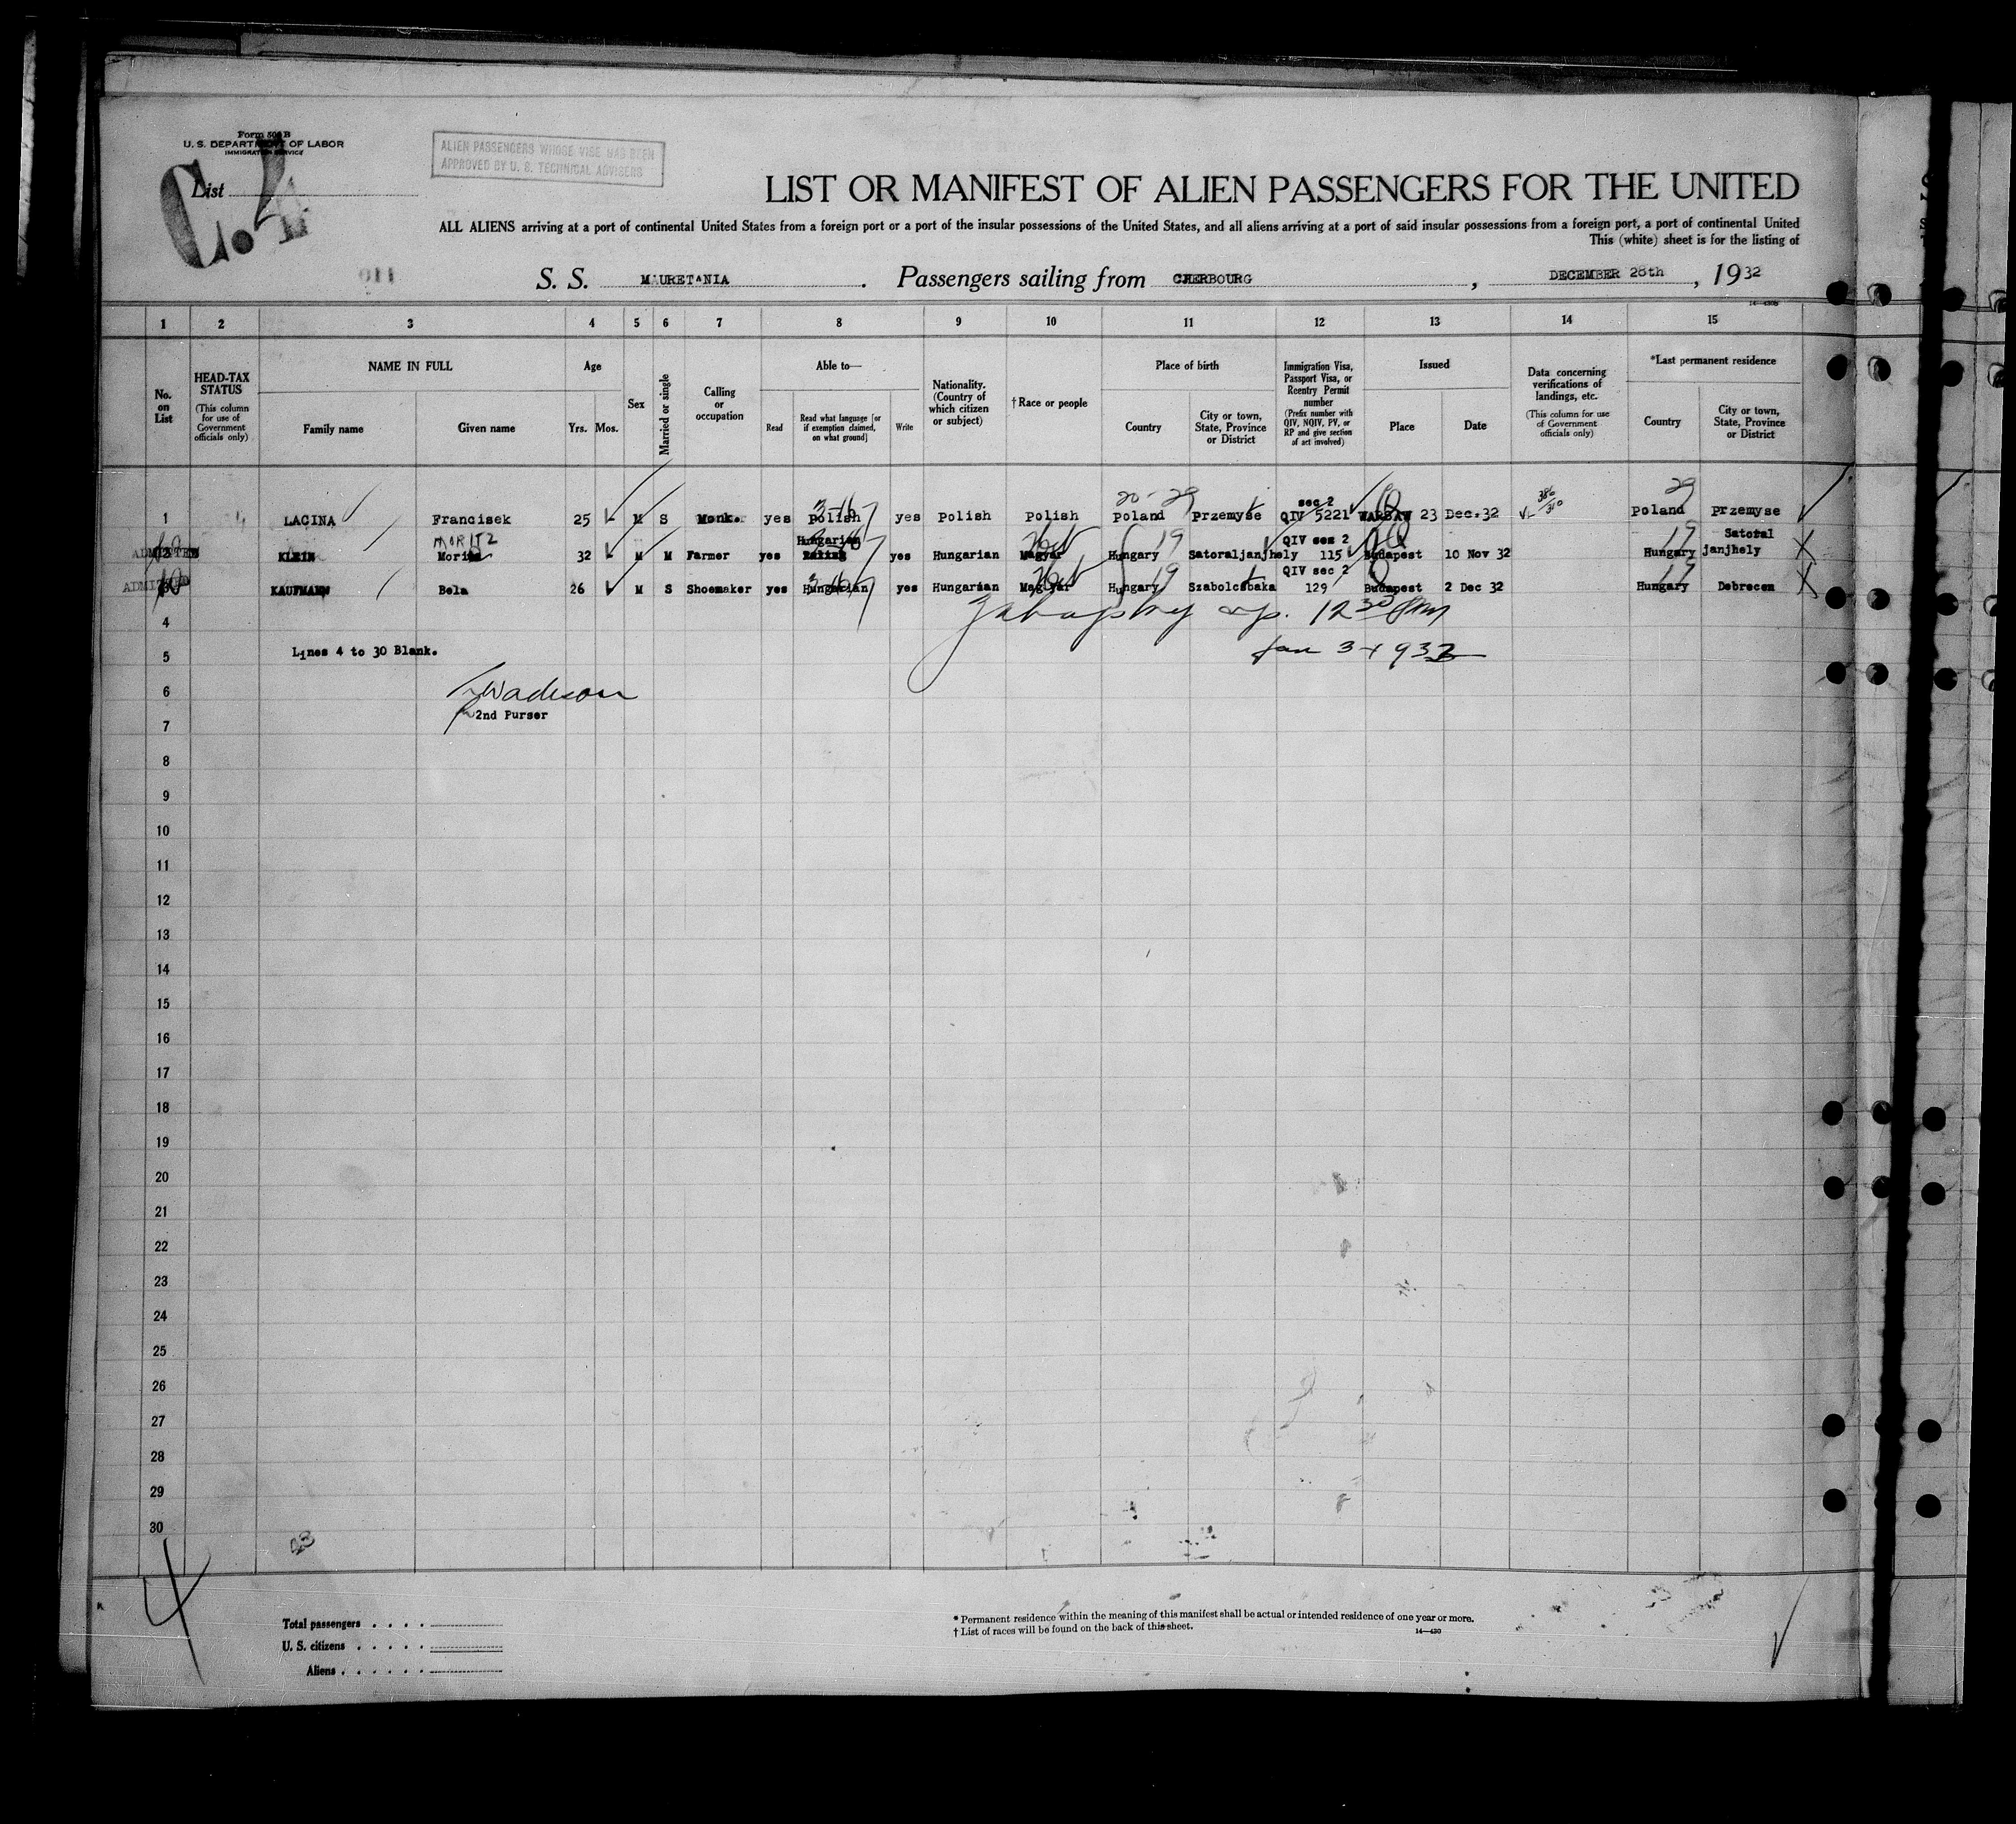 Form 500 B
U. S. DEPARTMENT OF LABOR
IMMIGRATION SERVICE
List
ALIEN PASSENGERS WHOSE VISE HAS BEEN
APPROVED BY U. S. TECHNICAL ADVISERS
LIST OR MANIFEST OF ALIEN PASSENGERS FOR THE UNITED
ALL ALIENS arriving at a port of continental United States from a foreign port or a port of the insular possessions of the United States, and all aliens arriving at a port of said insular possessions from a foreign port, a port of continental United
This (white) sheet is for the listing of
S. S. MAURETANIA. Passengers sailing from CHERBOURG, DECEMBER 28th, 1932
1 2 3 4 5 6 7 8 9 10 11 12 13 14 15
No. on List
HEAD-TAX STATUS (This column for use of Government officials only)
NAME IN FULL
Family name
Given name
Age
Yrs. Mos.
Sex
Married or single
Calling or occupation
Able to—
Read
Read what language [or if exemption claimed, on what ground]
Write
Nationality. (Country of which citizen or subject)
†Race or people
Place of birth
Country
City or town, State, Province or District
Immigration Visa, Passport Visa, or Reentry Permit number (Prefix number with QIV, NQIV, PV, or RP and give section of act involved)
Issued
Place
Date
Data concerning verifications of landings, etc. (This column for use of Government officials only)
*Last permanent residence
Country
City or town, State, Province or District
20 - 29 29
sec 2
1 LACINA Francisek 25 M S Monk. yes Polish yes Polish Polish Poland Przemyse QIV 5221 WARSAW 23 Dec.32 Poland Przemyse
MORITZ Hungarian 19 QIV sec 2 19 Satoral
ADMITTED KLEIN 32 M M Farmer yes yes Hungarian Magyar Hungary Satoraljanjhely 115 Budapest 10 Nov 32 Hungary janjhely
19 QIV sec 2
ADMITTED KAUFMANN Bela 26 M S Shoemaker yes Hungarian yes Hungarian Magyar Hungary Szabolcsbaka 129 Budapest 2 Dec 32 Hungary Debrecen
4
5 Lines 4 to 30 Blank.
6
2nd Purser
7
8
9
10
11
12
13
14
15
16
17
18
19
20
21
22
23
24
25
26
27
28
29
30
4
Total passengers
U. S. citizens
Aliens
* Permanent residence within the meaning of this manifest shall be actual or intended residence of one year or more.
† List of races will be found on the back of this sheet.
14—430